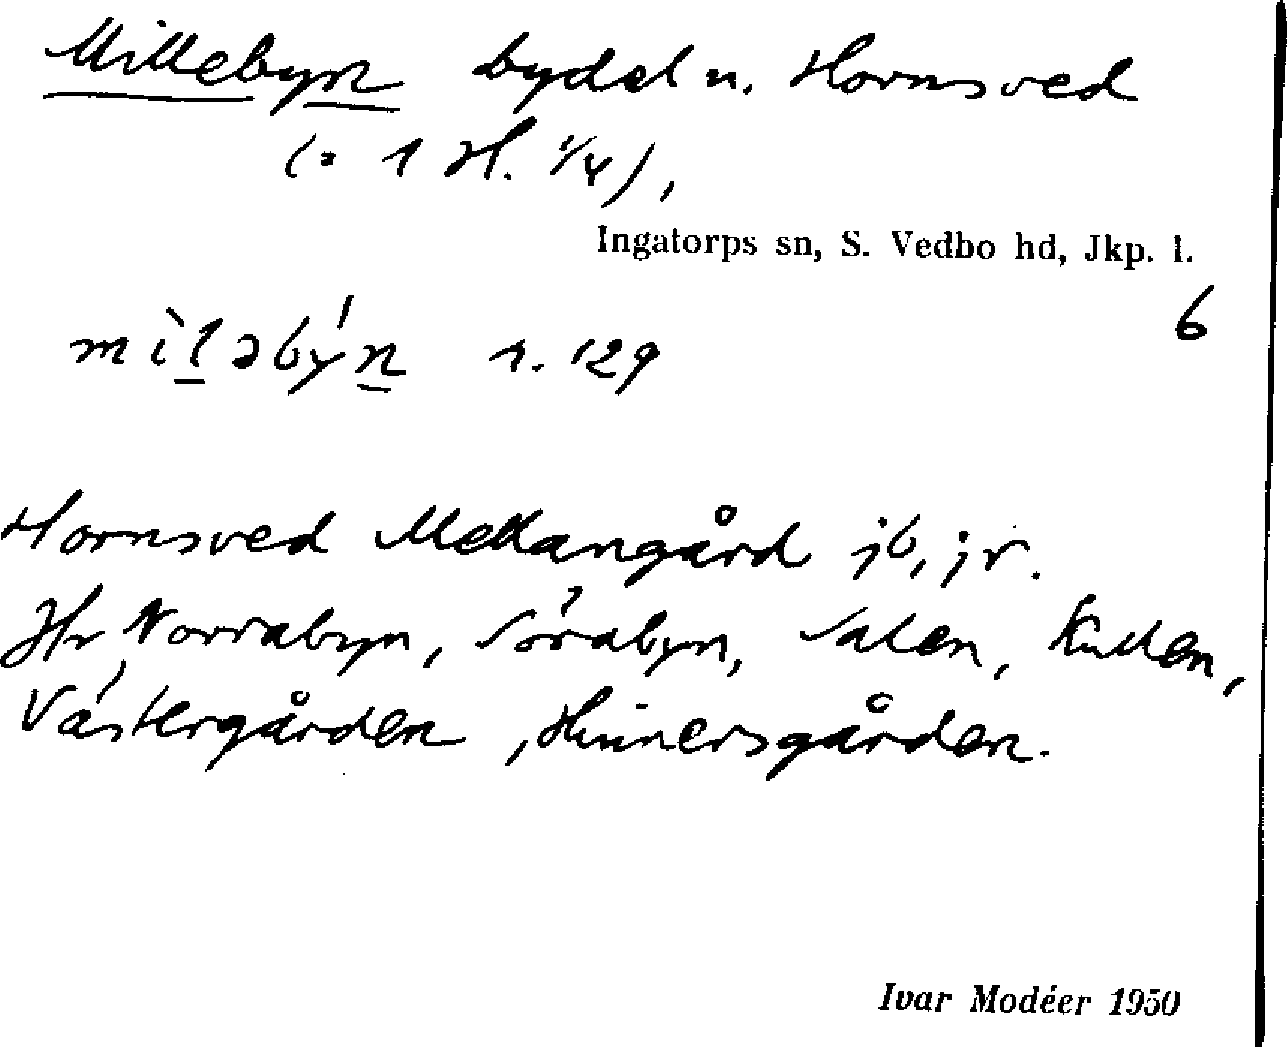 Millebyn bydel n. Hornsved
(= 1 H. 1/4),
Ingatorps sn, S. Vedbo hd, Jkp. l.
6
mìləbýn 1. 129
Hornsved Mellangård jb, jr.
Hr Norrabyn, Sörabyn, Salen, Kullen,
Västergården, Hinnersgården.
Ivar Modéer 1950